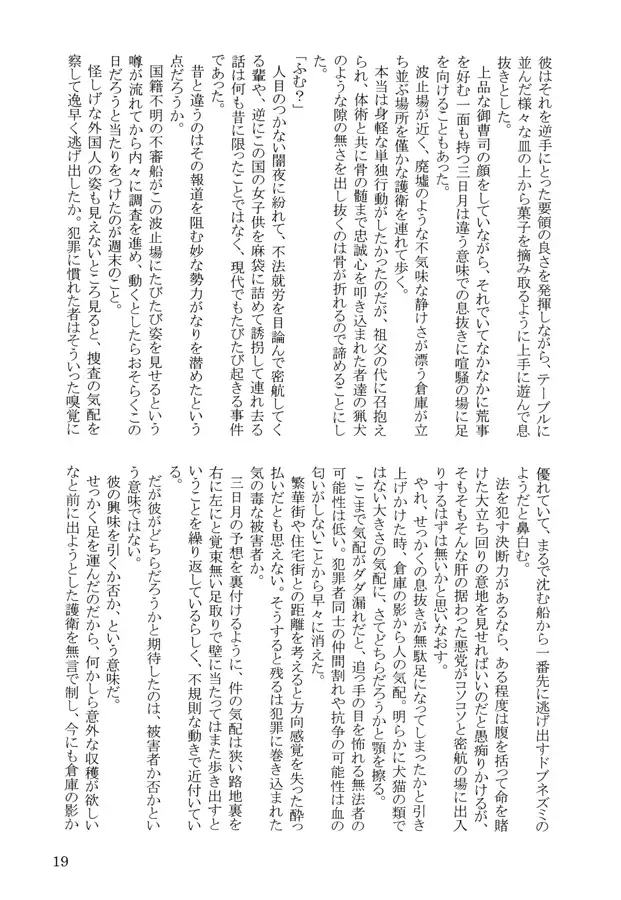 彼はそれを逆手にとった要領の良さを発揮しながら、テーブルに
並んだ様々な皿の上から菓子を摘み取るように上手に遊んで息
抜きとした。
上品な御曹司の顔をしていながら、それでいてなかなかに荒事
を好む一面も持つ三日月は違う意味での息抜きに喧騒の場に足
を向けることもあった。
波止場が近く、廃墟のような不気味な静けさが漂う倉庫が立
ち並ぶ場所を僅かな護衛を連れて歩く。
本当は身軽な単独行動がしたかったのだが、祖父の代に召抱え
られ、体術と共に骨の髄まで忠誠心を叩き込まれた者達の猟犬
のような隙の無さを出し抜くのは骨が折れるので諦めることにし
た。
「ふむ?」
人目のつかない闇夜に紛れて、不法就労を目論んで密航してく
る輩や、逆にこの国の女子供を麻袋に詰めて誘拐して連れ去る
話は何も昔に限ったことではなく、現代でもたびたび起きる事件
であった。
昔と違うのはその報道を阻む妙な勢力がなりを潜めたという
点だろうか。
国籍不明の不審船がこの波止場にたびたび姿を見せるという
噂が流れてから内々に調査を進め、動くとしたらおそらくこの
日だろうと当たりをつけたのが週末のこと。
怪しげな外国人の姿も見えないところ見ると、捜査の気配を
察して逸早く逃げ出したか。犯罪に慣れた者はそういった嗅覚に
優れていて、まるで沈む船から一番先に逃げ出すドブネズミの
ようだと鼻白む。
法を犯す決断力があるなら、ある程度は腹を括って命を賭
けた大立ち回りの意地を見せればいいのだと愚痴りかけるが、
そもそもそんな肝の据わった悪党がコソコソと密航の場に出入
りするはずは無いかと思いなおす。
やれ、せっかくの息抜きが無駄足になってしまったかと引き
上げかけた時、倉庫の影から人の気配。明らかに犬猫の類で
はない大きさの気配に、さてどちらだろうかと顎を擦る。
ここまで気配がダダ漏れだと、追っ手の目を怖れる無法者の
可能性は低い。犯罪者同士の仲間割れや抗争の可能性は血の
匂いがしないことから早々に消えた。
繁華街や住宅街との距離を考えると方向感覚を失った酔っ
払いだとも思えない。そうすると残るは犯罪に巻き込まれた
気の毒な被害者か。
三日月の予想を裏付けるように、件の気配は狭い路地裏を
右に左にと覚束無い足取りで壁に当たってはまた歩き出すと
いうことを繰り返しているらしく、不規則な動きで近付いてい
る。
だが彼がどちらだろうかと期待したのは、被害者か否かとい
う意味ではない。
彼の興味を引くか否か、という意味だ。
せっかく足を運んだのだから、何かしら意外な収穫が欲しい
なと前に出ようとした護衛を無言で制し、今にも倉庫の影か
19